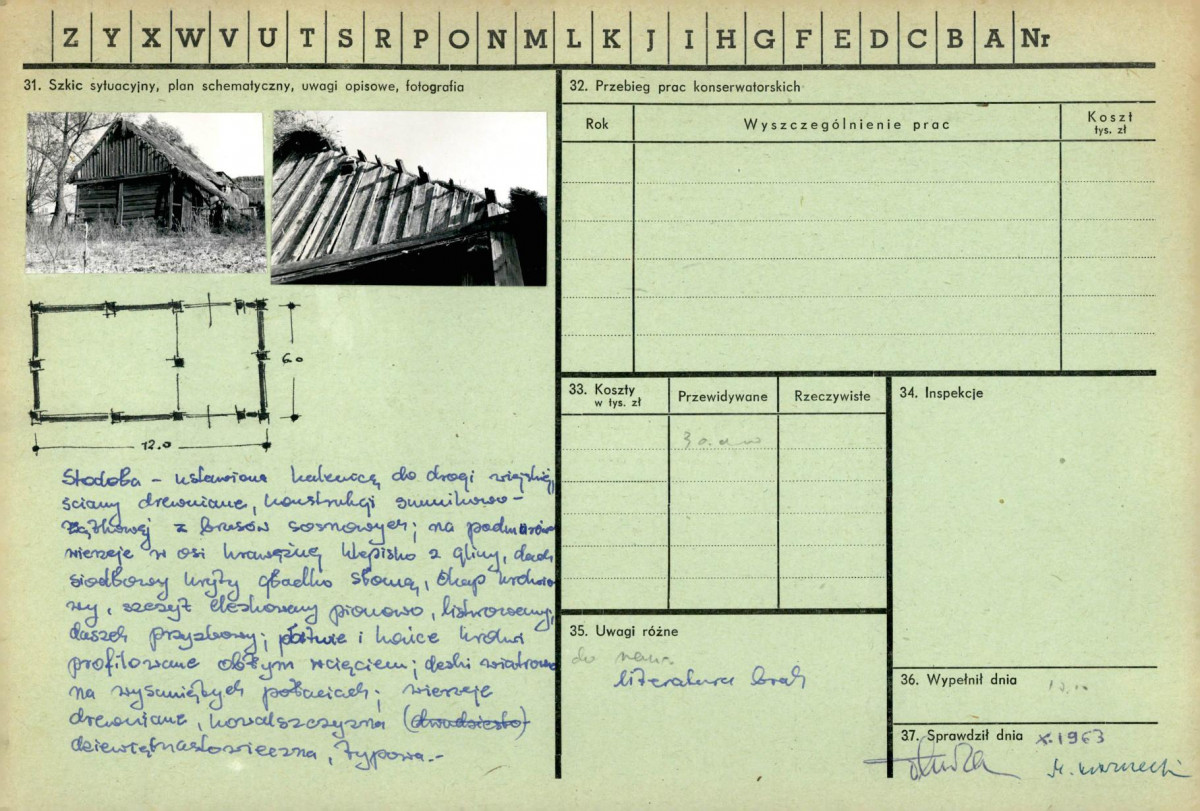 Z Y X W V U T S R P O N M L K J I H G F E D C B A Nr
31. Szkic sytuacyjny, plan schematyczny, uwagi opisowe, fotografia
6.0
12.0
Stodoła – ustawiona kalenicą do drogi wiejskiej,
ściany drewniane, konstrukcji sumikowo-
łątkowej z brusów sosnowych; na podmurów
wierzeje w osi klepisko z gliny, dach
siodłowy kryty gładko słomą, okap krokwio
wy, szczyt deskowany pionowo, listwowany,
daszek przyzbowy; płatwie i końce krokwi
profilowane obłym wcięciem; deski wiatrowe
na wysuniętych połaciach; wierzeje
drewniane, kowalszczyzna (dwudziesto)
dziewiętnastowieczna, typowa.–
32. Przebieg prac konserwatorskich
Rok Wyszczególnienie prac Koszt
tys. zł
33. Koszty
w tys. zł
Przewidywane Rzeczywiste
34. Inspekcje
35. Uwagi różne
literatura brak
36. Wypełnił dnia
37. Sprawdził dnia X.1963